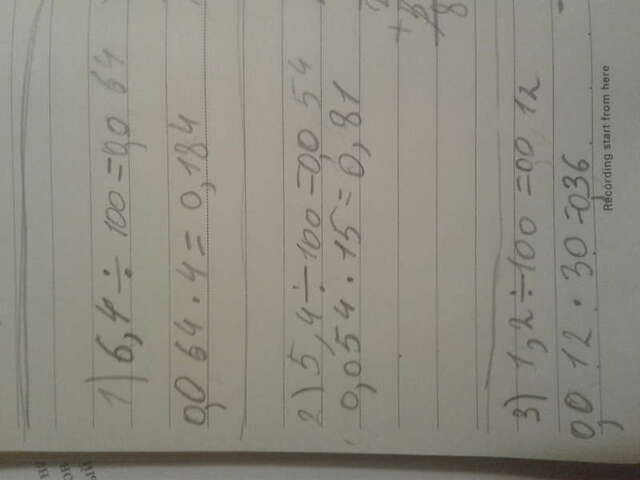 на
он
ый
1) 6,4 ÷ 100 = 0,0 64
0,0 64 · 4 = 0,184
2) 5,4 ÷ 100 = 0,0 54
0,054 · 15 = 0,81
+
8
3) 1,2 ÷ 100 = 00 12
0,0 12 · 30 = 0,36
Recording start from here